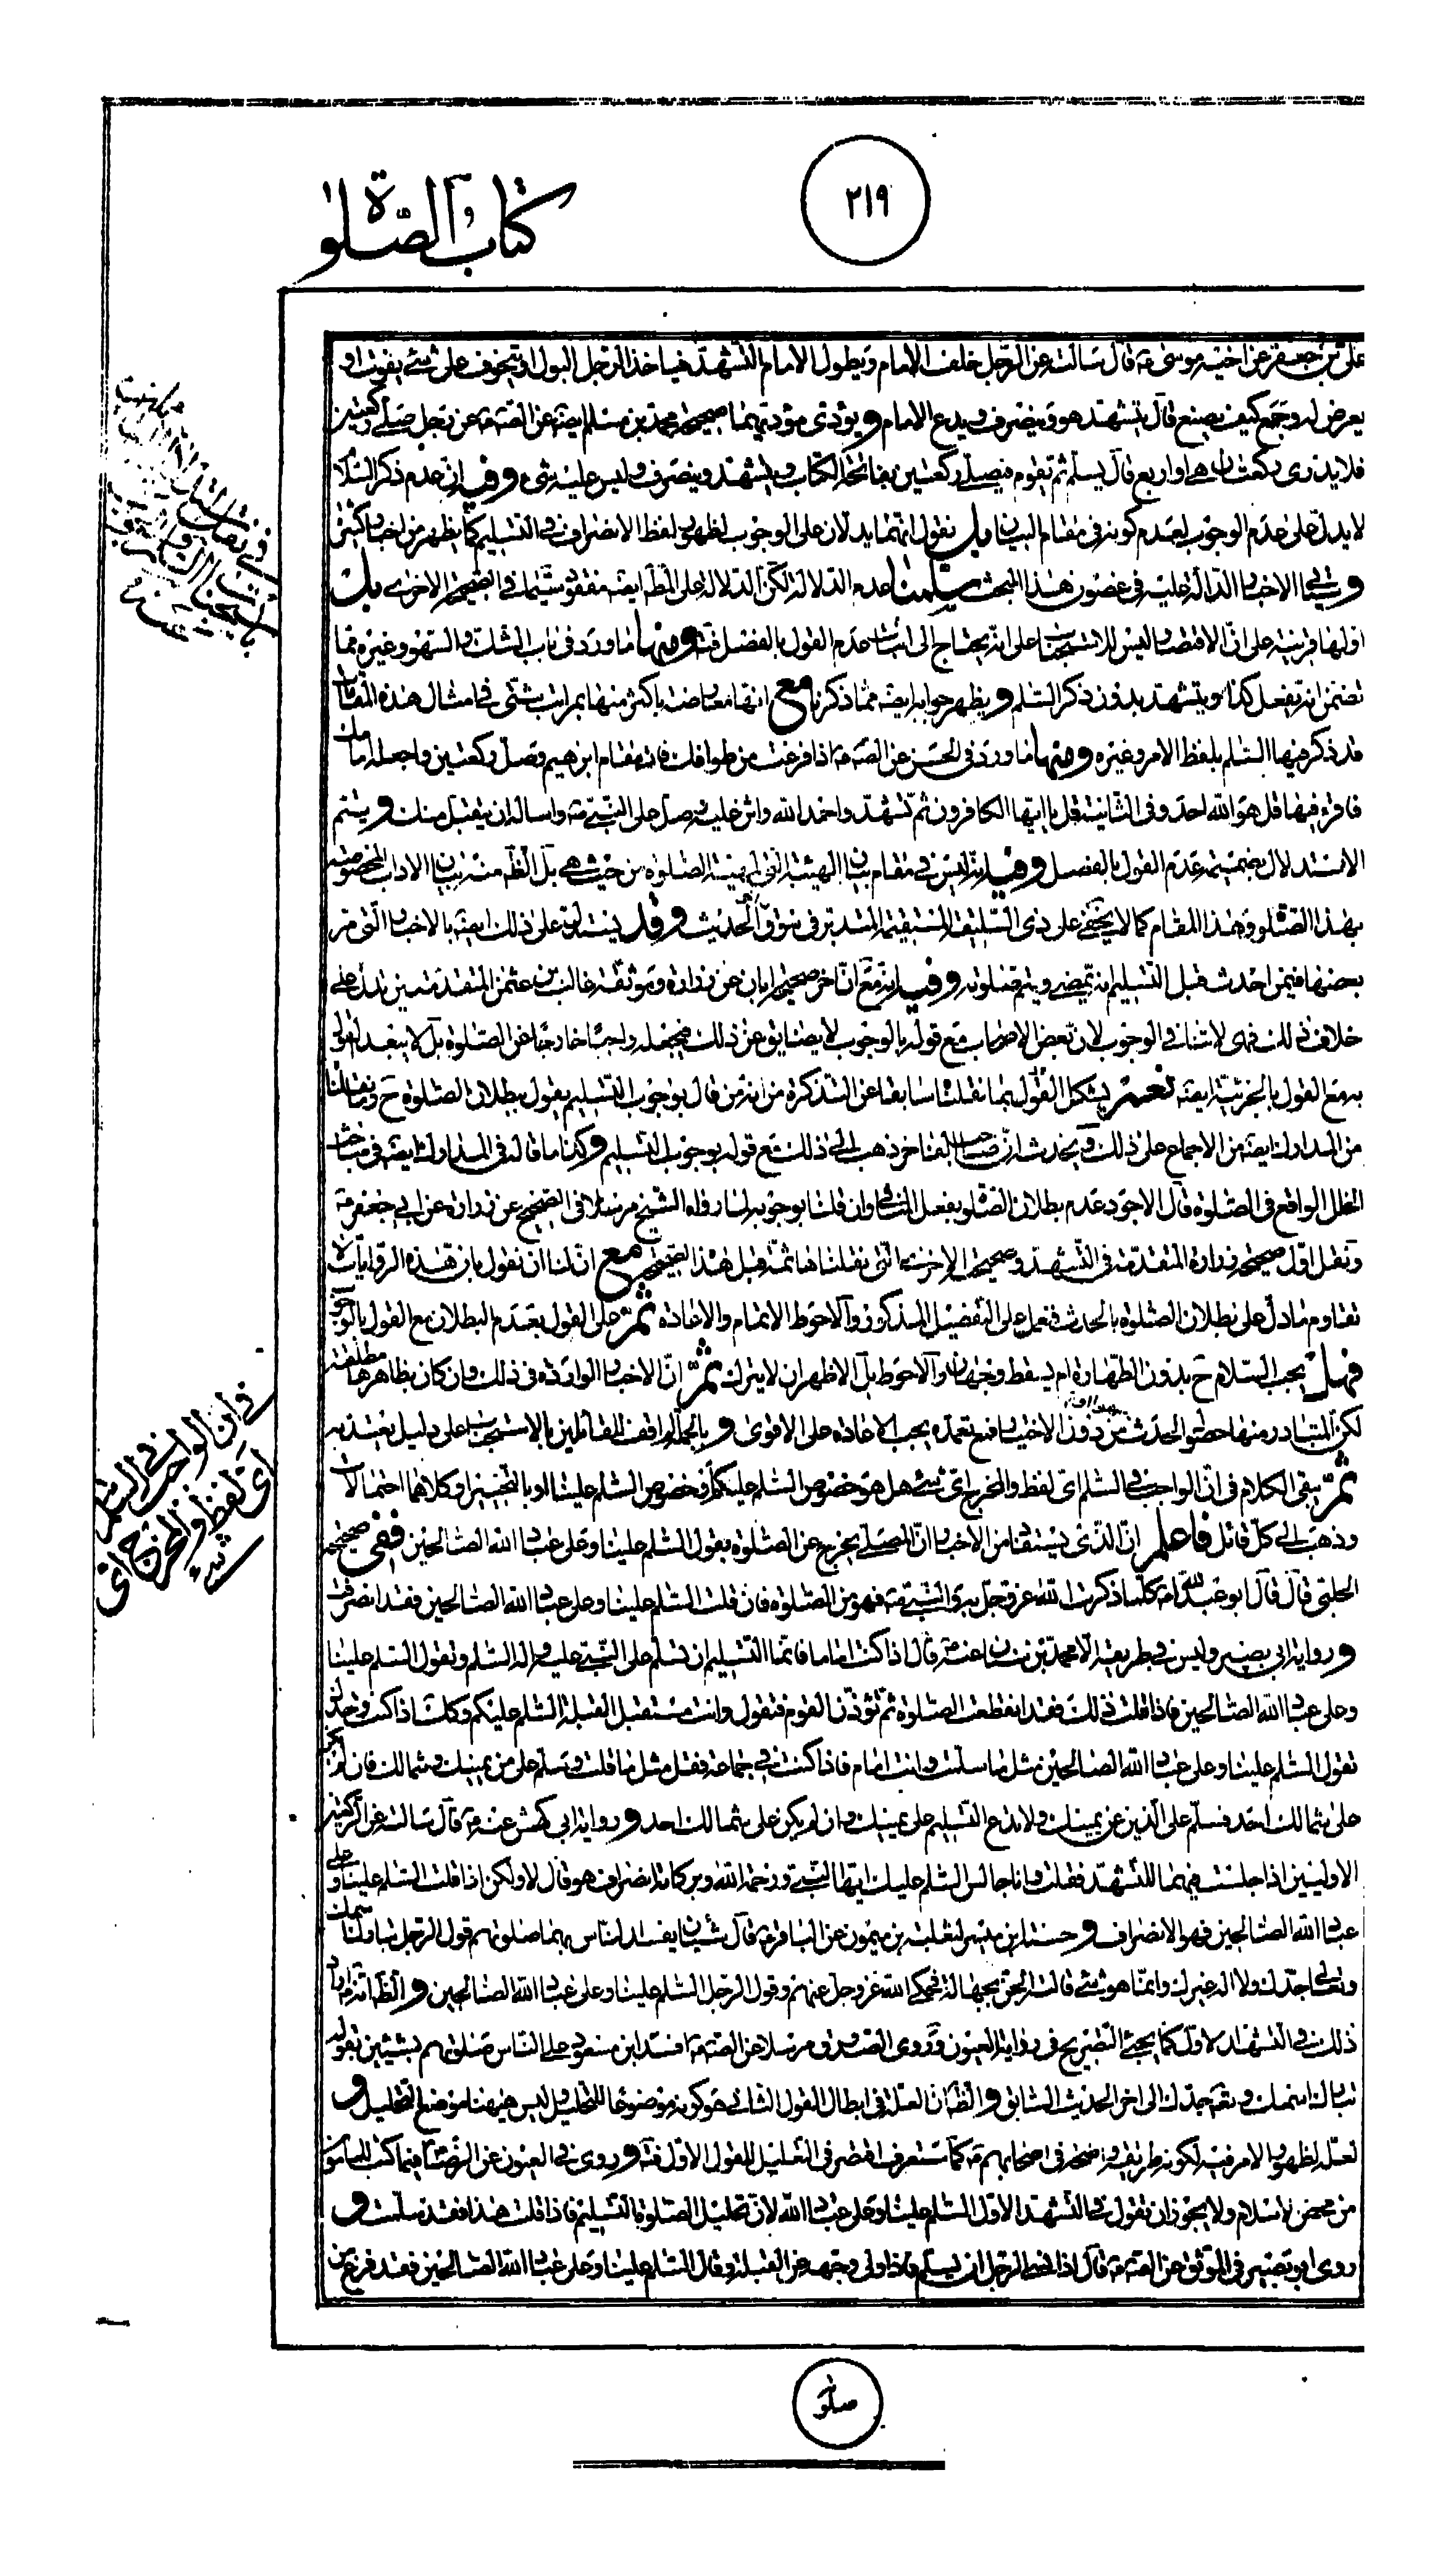 ٢١٩
كتاب الصلوة
على بن جعفر عن اخيه موسى ع قال سالته عن الرجل خلف الامام ويطول الامام التشهد فياخذ الرجل البول او يتخوف على شئ يفوت او
يعرض له وجع كيف يصنع قال يتشهد هو وينصرف ويدع الامام و يؤدى مؤديهما صحيحة محمد بن مسلم ايضه عن الصه ع عن رجل صلى ركعتين
فلا يدرى ركعتان هى او اربع قال يسلم ثم يقوم فيصلى ركعتين بفاتحة الكتاب ويتشهد وينصرف وليس عليه شئ وفيه ان عدم ذكر السلام
لا يدل على عدم الوجوب لعدم كونه فى مقام البيان بل نقول انهما يدلان على الوجوب لظهور لفظ الانصراف فى التسليم كما يظهر من اخبار كثيرة
وسيأتى الاخبار الدالة عليه فى غضون هذا المبحث سلمنا عدم الدلالة لكن الدلالة على الظ ايضه مفقود سيما فى الصحيحة الاخرى بل
اولها قرينة على ان الاقتصار ليس للاستحباب على انه يحتاج الى اثبات عدم القول بالفصل فته ومنها ما ورد فى باب الشك والسهو وغيره مما
تضمن انه يفعل كذا ويتشهد بدون ذكر السلم و يظهر جوابه ايضه مما ذكرنا مع انها معارضة باكثر منها بمراتب شتى فى امثال هذه المقامات
قد ذكر فيها السلم بلفظ الامر وغيره ومنها ما ورد فى الحسن عن الصه ع اذا فرغت من طوافك فات مقام ابرهيم وصل ركعتين واجعله امامك
فاقرء فيها قل هو الله احد وفى الثانية قل يا ايها الكافرون ثم تشهد واحمد الله واثن عليه وصل على النبي ص واساله ان يتقبل منك و يتم
الاستدلال بضميمة عدم القول بالفصل وفيه انه ليس فى مقام بيان الهيئة التى لهيئة الصلوة من حيث هى بل الظ منه بيان الاداب المخصوصة
بهذا الصلو وهذا المقام كما لا يخفى على ذى السليقة المستقيمة المتدبر فى سوق الحديث وقد يستدل على ذلك ايضه بالاخبار التى مر
بعضها فيمن احدث قبل التسليم انه يمضى ويتم صلوته وفيه انه مع ان اخر صحيحة ابان عن زرارة وموثقة غالب بن عثمن المتقدمتين تدل على
خلاف ذلك فهى لا تنافى الوجوب لان بعض الاصحاب مع قوله بالوجوب لا يضايق عن ذلك فيجعله واجبا خارجا عن الصلوة بل لا يبعد القول
به مع القول بالجزئية ايضه نعم يشكل القول بما نقلنا سابقا عن التذكرة من انه من قال بوجوب التسليم يقول ببطلان الصلوة ح وبما نقلنا
من المدارك ايضه من الاجماع على ذلك و يخدشه ان صاحب المفاخر ذهب الى ذلك مع قوله بوجوب التسليم وكذا ما قاله فى المدارك ايضه فى مباحث
الخلل الواقع فى الصلوة قال الاجود عدم بطلان الصلو بفعل المنافى وان قلنا بوجوبه لما رواه الشيخ مرسلا فى الصحيح عن زرارة عن ابى جعفر ع
ونقل اول صحيحة زرارة المتقدمة فى التشهد وصحيحة الاخرى التى نقلناها ثمة قبل هذا الصحيحة مع ان لنا ان نقول بان هذه الروايات لا
تقاوم ما دل على بطلان الصلوة بالحدث فنعمل على التفصيل المذكور والاحوط الاتمام والاعادة ثم على القول بعدم البطلان مع القول بالوجوب
فهل يجب السلام ح بدون الطهارة ام يسقط وجهان والاحوط بل الاظهر ان لا يترك ثم ان الاخبار الواردة فى ذلك وان كان بظاهرها مطلقة
لكن المتبادر منها حصول الحدث من دون الاختيار فمع تعمده يجب الاعادة على الاقوى و بالجملة لم اقف للقائلين بالاستحباب على دليل يعتد به
ثم يبقى الكلام فى ان الواجب فى السلم اى لفظ والمخرج اى شئ هل هو خصوص السلم عليكم او خصوص السلم علينا او بالتخيير او كلاهما احتمالات
وذهب الى كل قائل فاعلم ان الذى يستفاد من الاخبار ان المصلى يخرج عن الصلوة بقول السلم علينا وعلى عباد الله الصالحين ففى صحيحة
الحلبى قال قال ابو عبد الله ع كلما ذكرت الله عز وجل به والنبي ص فهو من الصلوة فان قلت السلم علينا وعلى عباد الله الصالحين فقد انصرفت
و رواية ابى بصير وليس فى طريقه الا محمد بن سنان عنه ع قال اذا كنت اماما فانما التسليم ان تسلم على النبي عليه واله السلم وتقول السلم علينا
وعلى عباد الله الصالحين فاذا قلت ذلك فقد انقطعت الصلوة ثم تؤذن القوم فتقول وانت مستقبل القبلة السلم عليكم وكذلك اذا كنت وحدك
تقول السلم علينا وعلى عباد الله الصالحين مثل ما سلمت وانت امام فاذا كنت فى جماعة فقل مثل ما قلت وسلم على من يمينك وشمالك فان لم يكن
على شمالك احد فسلم على الذين عن يمينك ولا تدع التسليم على يمينك وان لم يكن على شمالك احد و رواية ابى كهمش عنه ع قال سالته عن الركعتين
الاوليين اذا جلست فيهما للتشهد فقلت وانا جالس السلم عليك ايها النبي ورحمة الله وبركاته انصراف هو قال لا ولكن اذا قلت السلم علينا وعلى
عباد الله الصالحين فهو الانصراف و حسنة ابن ميسر لثعلبة بن ميمون عن الباقر ع قال شيئان يفسد الناس بهما صلوتهم قول الرجل تبارك اسمك
وتعالى جدك ولا اله غيرك وانما هو شئ قالته الجن بجهالة فحكى الله عز وجل عنهم وقول الرجل السلم علينا وعلى عباد الله الصالحين و الظ انه اراد
ذلك فى التشهد الاول كما يجئ التصريح فى رواية العيون و روى الصدوق مرسلا عن الصه ع افسد ابن مسعود على الناس صلوتهم بشيئين بقوله
تبارك اسمك وتعالى جدك الى اخر الحديث السابق و الظ ان العلة فى ابطال القول الثانى هو كونه موضوعا للتحليل وليس هيهنا موضع التحليل و
لعله لظهور الامر فيه لكونه طريقة واضحة فى اصحابهم ع كما ستعرف اقتصر فى التعليل للقول الاول فته و روى فى العيون عن الرضا ع فيما كتب للمامون
من محض الاسلام ولا يجوز ان تقول فى التشهد الاول السلم علينا وعلى عباد الله لان تحليل الصلوة التسليم فاذا قلت هذا فقد سلمت و
روى ابو بصير فى الموثق عن الصه ع قال اذا نسى الرجل ان يسلم فاذا ولى وجهه عن القبلة وقال السلم علينا وعلى عباد الله الصالحين فقد فرغ من
فى ان الواجب فى السلم
اى لفظ والمخرج اى
شئ
صلوة